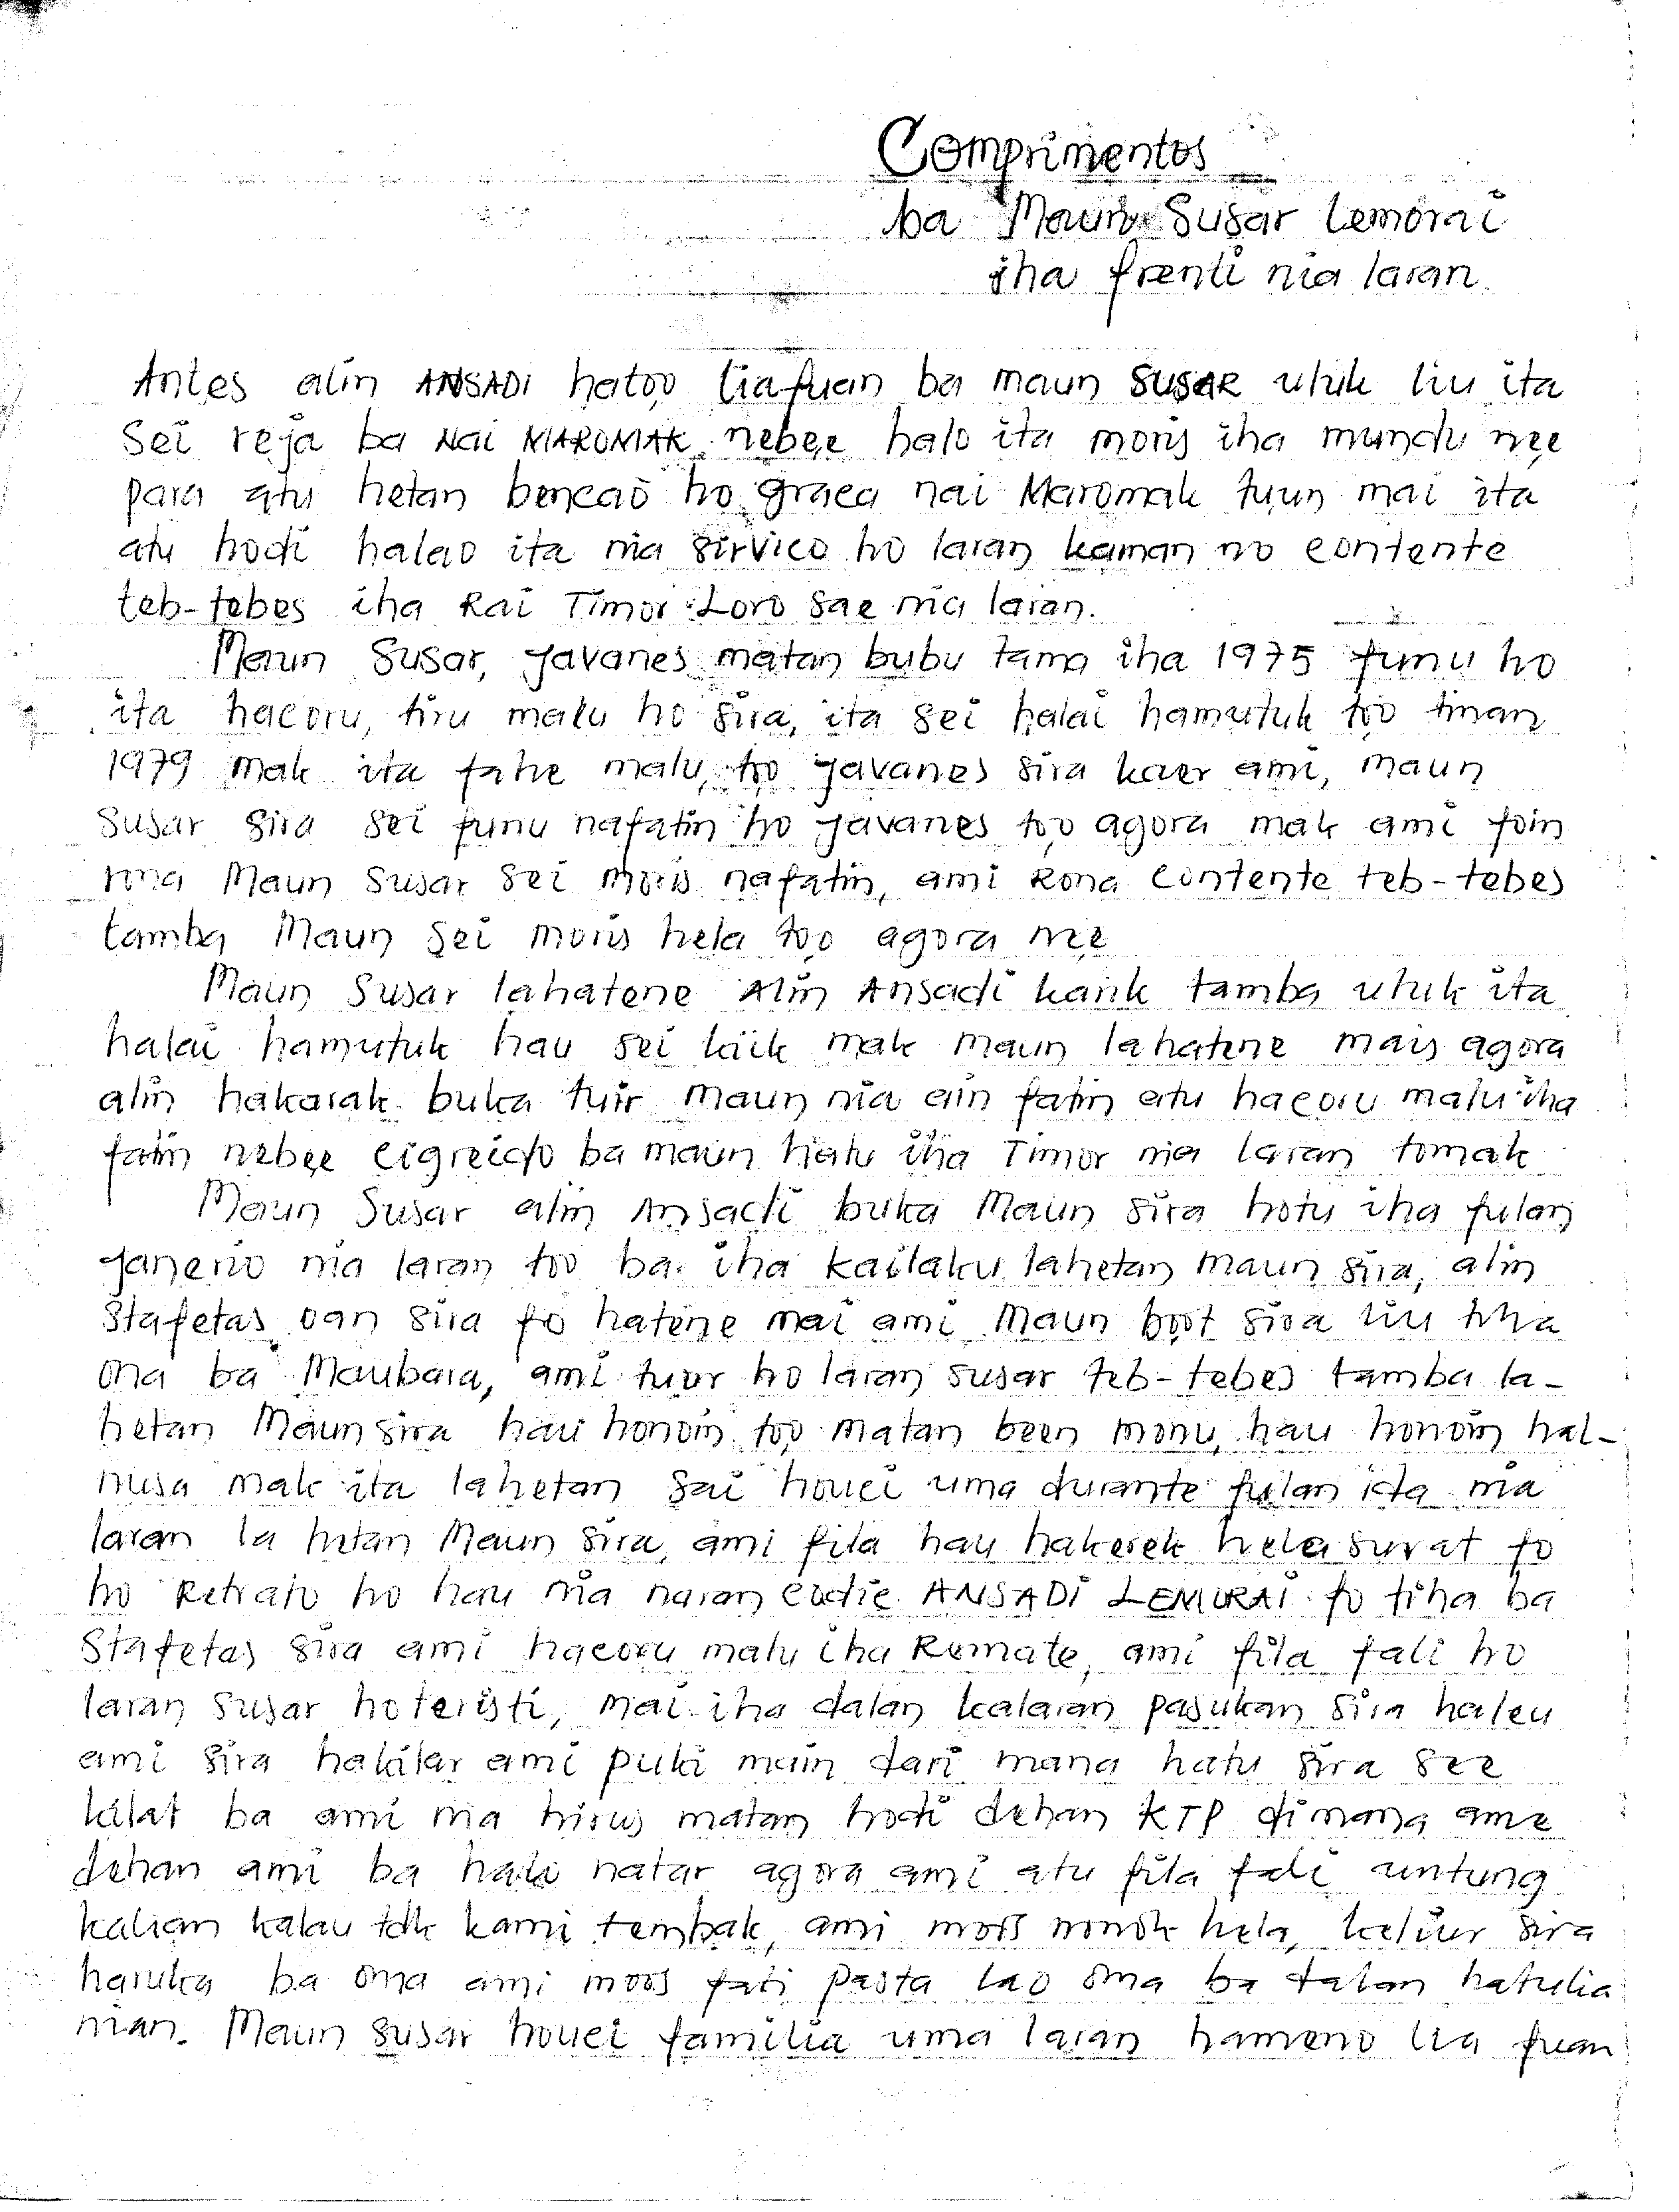 Comprimentos
ba Maun Susar Lemorai
iha frenti nia laran.
Antes alin ANSADI hatoo liafuan ba maun SUSAR uluk liu ita
Sei reja ba Nai MAROMAK nebee halo ita moris iha mundu nee
para atu hetan bencaō ho graca nai Maromak tuun mai ita
atu hodi halao ita nia sirvico ho laran kaman no contente
teb-tebes iha Rai Timor Loro Sae nia laran.
Maun Susar, Javanes matan bubu tama iha 1975 funu ho
ita hacoru, tiru malu ho sira, ita sei halai hamutuk too tinan
1979 mak ita fahe malu, too Javanes sira kaer ami, maun
Susar sira sei funu nafatin ho Javanes too agora mak ami foin
rona Maun Susar sei moris nafatin, ami Rona contente teb-tebes
tamba Maun sei moris hela too agora nee
Maun Susar lahatene Alin Ansadi karik tamba uluk ita
halai hamutuk hau sei kiik mak maun lahatene mais agora
alin hakarak buka tuir maun nia ain fatin atu hacoru malu iha
fatin nebee cigreido ba maun hatu iha Timor nia laran tomak
Maun Susar alin Ansadi buka Maun sira hotu iha fulan
Janerio nia laran too ba iha kailaku lahetan maun sira, alin
Stafetas oan sira fo hatene mai ami Maun boot sira liu tiha
ona ba Maubara, ami tuur ho laran susar teb-tebes tamba la-
hetan Maun sira hau honoin too matan been monu, hau honoin hal-
nusa mak ita lahetan sai houci uma durante fulan ida nia
laran la hetan Maun sira, ami fila hau hakerek hela surat fo
ho Retrato ho hau nia naran codie ANSADI LEMORAI fo tiha ba
Stafetas sira ami hacoru malu iha Remate, ami fila fali ho
laran susar ho teristi, mai iha dalan kalaran pasukan sira haleu
ami sira hakilar ami puki main dari mana hatu sira see
kilat ba ami nia hirus matan hodi dehan KTP di mana ame
dehan ami ba halo natar agora ami atu fila fali untung
kalian kalau tdk kami tembak, ami moss nonok hela, keliur sira
haruka ba ona ami moos foti pasta lao ona ba dalan hatulia
nian. Maun susar houci familia uma laran hameno lia fuan